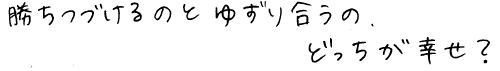 勝ちつづけるのと ゆずり合うの、
どっちが幸せ?